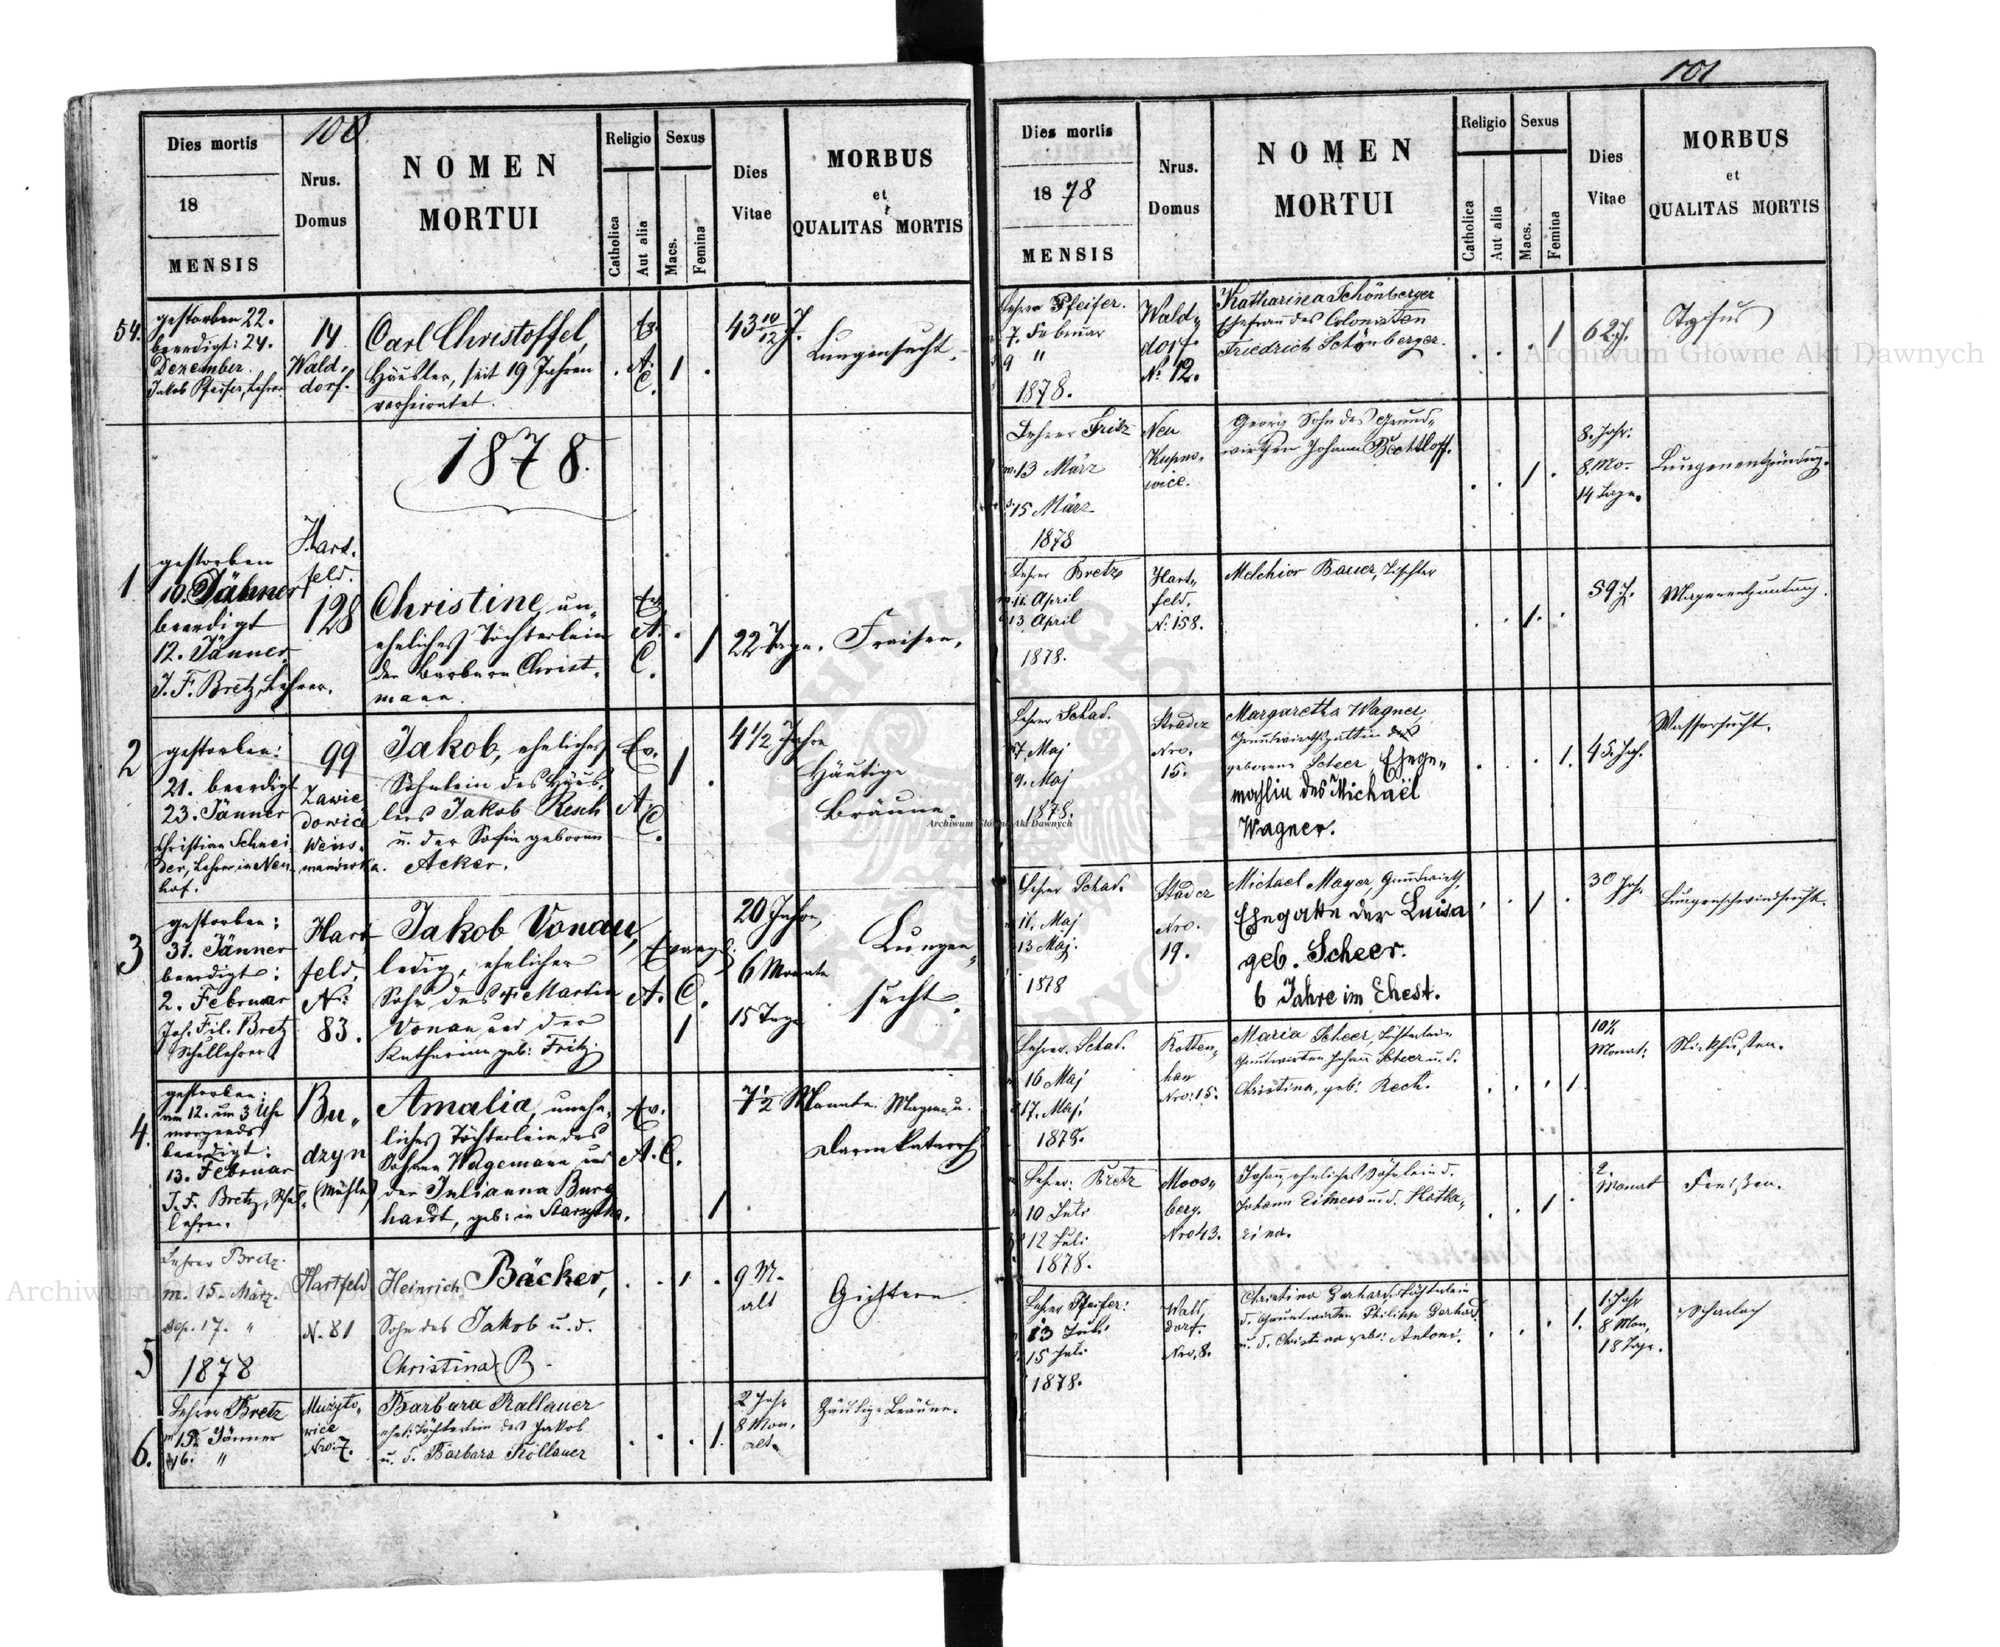 100
Dies mortis
18
MENSIS
Nrus.
Domus
NOMEN
MORTUI
Religio
Catholica
Aut alia
Sexus
Macs.
Femina
Dies
Vitae
MORBUS
et
QUALITAS MORTIS
54.
gestorben 22.
beerdigt: 24.
Dezember.
Jakob Pfeifer, Lehrer.
14
Wald-
dorf.
Carl Christoffel,
Häusler, seit 19 Jahren
verheiratet.
Ev.
A.
C.
1
43 10/12 J.
Lungensucht.
1878.
1
gestorben
10. Jänner
beerdigt
12. Jänner
J. F. Bretz, Lehrer.
Hart-
feld.
128
Christine, un-
eheliches Töchterlein
der Barbara Christ-
mann.
Ev.
A.
C.
1
22 Tage.
Fraisen.
2
gestorben:
21. beerdigt
23. Jänner
Christian Schnei-
der, Lehrer in Neu-
hof.
99
Zawie-
dowice
Weiss-
manówka.
Jakob, eheliches
Söhnlein des Häus-
lers Jakob Resch
u. der Sofia geborene
Acker.
Ev.
A.
C.
1
4 1/2 Jahre
Häutige
Bräune.
3
gestorben:
31. Jänner
beerdigt:
2. Februar
Joh. Fil. Bretz
Schullehrer
Hart-
feld,
No:
83.
Jakob Vonau,
ledig, ehelicher
Sohn des + Martin
Vonau und der
Katharina geb: Fritz.
Evangl.
A. C.
1
20 Jahre,
6 Monate
15 Tage
Lungen-
sucht.
4.
gestorben:
am 12. um 3 Uhr
morgends
beerdigt:
13. Februar
J. F. Bretz, Schul-
lehrer.
Bu-
dzyn
(Mühle)
Amalia, unehe-
liches Töchterlein des
Johann Wagemann und
der Julianna Burg
hardt, geb: in Starzyska.
Ev.
A. C.
1
7 1/2 Monate.
Magen u.
Darmkatarrh
5
Lehrer Bretz.
m. 15. März.
sep. 17. "
1878
Hartfeld
N. 81
Heinrich Bäcker,
Sohn des Jakob u. d.
Christina B.
1
9 M.
alt
Gichtern
6.
Lehrer Bretz
m 15. Jänner
16. "
Muzyło-
wice
Nro: 7.
Barbara Kallauer
ehel: Töchterlein des Jakob
u. d. Barbara Kollauer
1.
2 Jahr
8 Mon.
alt.
Häutige Bräune.
101
Dies mortis
1878
MENSIS
Nrus.
Domus
NOMEN
MORTUI
Religio
Catholica
Aut alia
Sexus
Macs.
Femina
Dies
Vitae
MORBUS
et
QUALITAS MORTIS
Lehrer Pfeifer.
7. Februar
9 "
1878.
Wald-
dorf
No 12.
Katharina Schönberger
Ehefrau des Colonisten
Friedrich Schönberger.
1
62 J.
Tyfus
Lehrer Fritz
m. 13 März
s 15 März
1878
Neu
Kupno-
wice.
Georg Sohn des Grund-
wirthen Johann Bottloff.
1
8. Jahr:
8. Mo-
14 Tage.
Lungenentzündung.
Lehrer Bretz
m. 11. April
13 April
1878.
Hart-
feld.
N: 158.
Melchior Bauer, Tischler
1.
59 J.
Magenentzündung.
Lehrer Schad.
7. Maj
9. Maj
1878.
Stradcz
Nro.
15.
Margaretha Wagner,
Grundwirthsgattin des
geborene Scheer, Ehege-
mahlin des Michaël
Wagner.
1.
45. Jah.
Wassersucht.
Lehrer Schad.
11. Maj
13 Maj.
1878
Stradcz
Nro.
19.
Michael Mayer, Grundwirth,
Ehegatte der Luisa
geb. Scheer.
6 Jahre im Ehest.
1
30 Jah.
Lungenschwindsucht.
Lehrer Schad.
16 Maj
17. Maj.
1878.
Rotten-
han
Nro: 15.
Maria Scheer, Töchterlein
Grundwirthen Johann Scheer u. d.
Christina, geb: Rech.
1
10 1/2
Monat:
Stickhusten.
Lehrer: Bretz
10 Juli
12 Juli
1878.
Moos-
berg.
Nro 43.
Johann eheliches Söhnlein d.
Johann Eitness u. d. Katha-
rina.
1
2
Monat
Freißen.
Lehrer Pfeifer:
13 Juli
15 Juli
1878.
Wall-
dorf.
Nro. 8.
Christina Gerhard, Töchterlein
d. Grundwirthen Philipp Gerhard
u. d. Christina geb: Antoni.
1.
1. Jahr
8 Mon,
18 Tage.
Scharlach
Archiwum Główne Akt Dawnych
Archiwum Główne Akt Dawnych
Archiwum Główne Akt Dawnych
ARCHIWUM GŁÓWNE AKT DAWNYCH